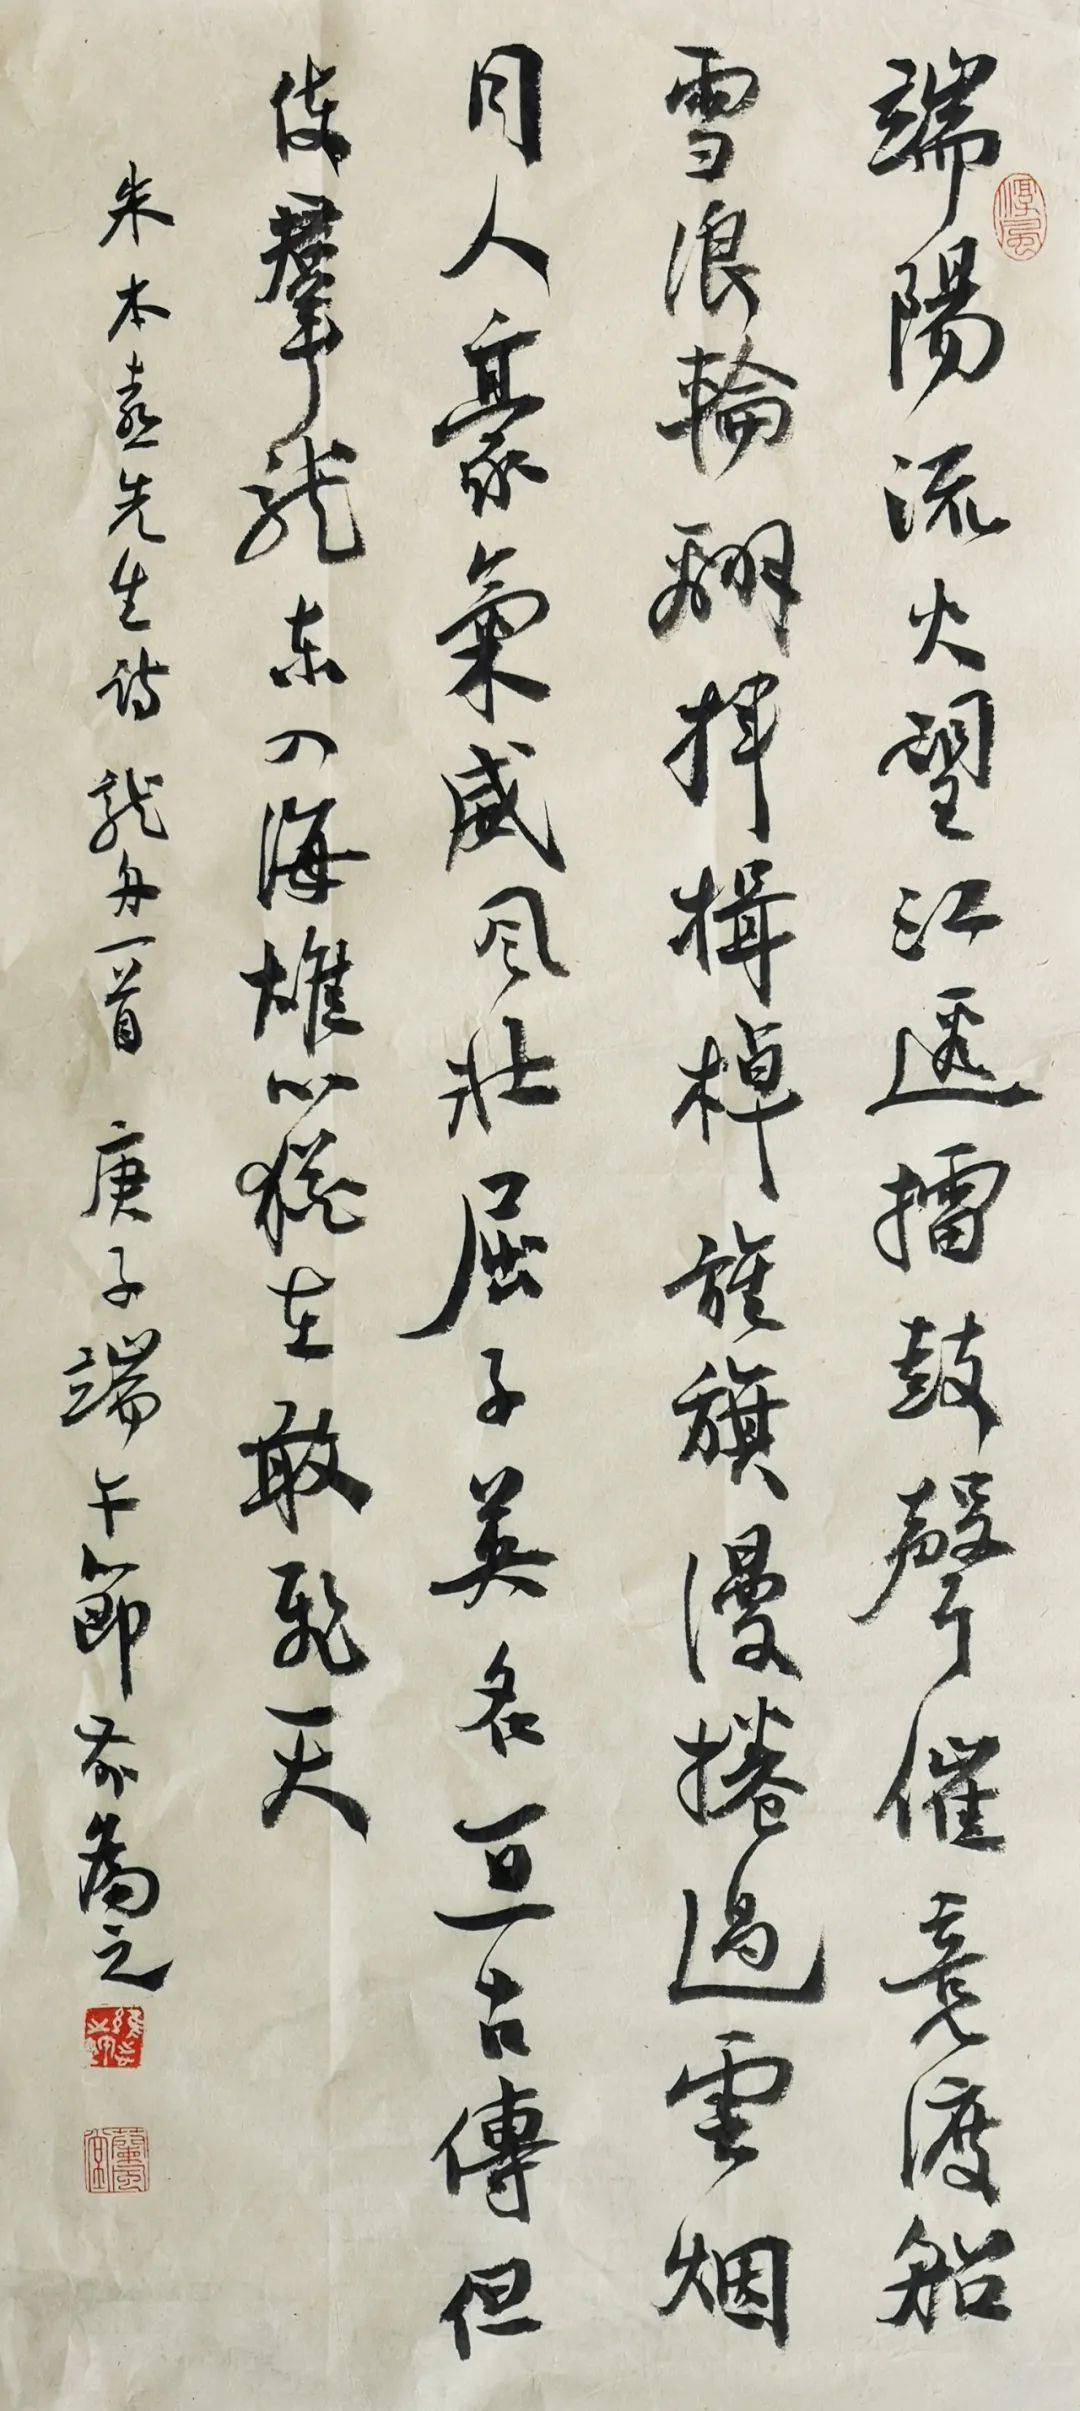 端陽流火望江邊擂鼓聲催竞渡船
雪浪輪翻挥楫棹旌旗漫捲過雲烟
同人豪氣威风壮屈子英名亘古傳但
使羣龍东入海雄心猶在敢飛天
朱本喜先生诗龍舟一首 庚子端午節 喬之